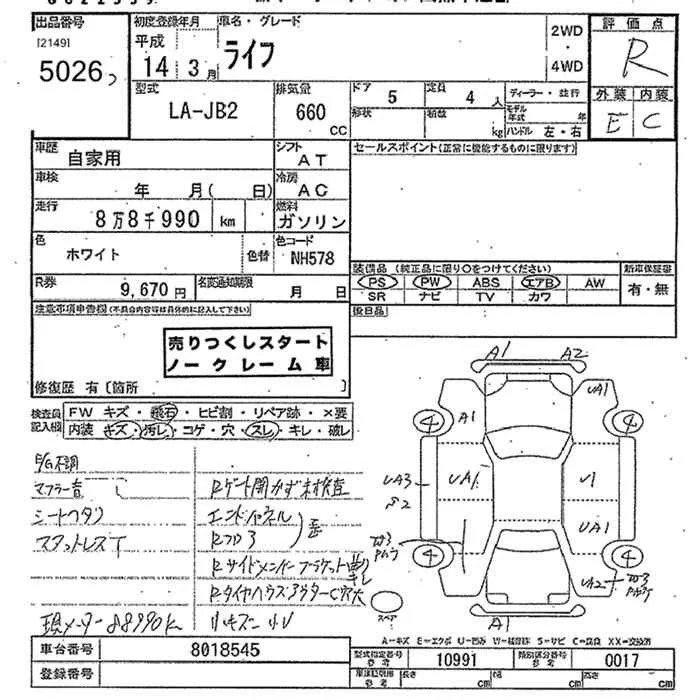 出品番号 初度登録年月 車名・グレード 2WD・4WD 評価点
[2149]
5026 平成14 3月 ライフ R
外装 内装
E C
型式 排気量 ドア 定員 ディーラー・並行
LA-JB2 660cc 5 4人
形状 積数 kg モデル年式 年
ハンドル 左・右
車歴 自家用 シフト AT セールスポイント(正常に機能するものに限ります)
車検 年 月( 日) 冷房 AC
走行 8万8千990 km 燃料 ガソリン
色 ホワイト 色替 色コード NH578
装備品(純正品に限り○をつけてください) 新車保証書
PS PW ABS エアB AW 有・無
SR ナビ TV カワ
R券 9,670円 名変通知期限 月 日
後日品
注意事項申告欄(不具合内容等は具体的に記入して下さい)
売りつくしスタート
ノークレーム車
修復歴 有〔箇所 〕
検査員記入欄
FW キズ・飛石・ヒビ割・リペア跡・×要
内装 キズ・汚レ・コゲ・穴・スレ・キレ・破レ
E/G不調
マフラー音
シートヘタリ
スタットレスT
現メーター88990k
Rゲート開かず未検査
エンドパネル
Rフロア
歪
Rサイドメンバー
A1 A2
A1 UA1
4 4
UA3 UA1 U1
S2
UA1
4 4
UA2
A1
スペア
A=キズ E=エクボ U=凹み W=補修跡 S=サビ C=腐食 XX=交換済
車台番号 8018545
登録番号
型式指定番号 参考 10991 類別区分番号 参考 0017
長さ cm 幅 cm 高さ cm